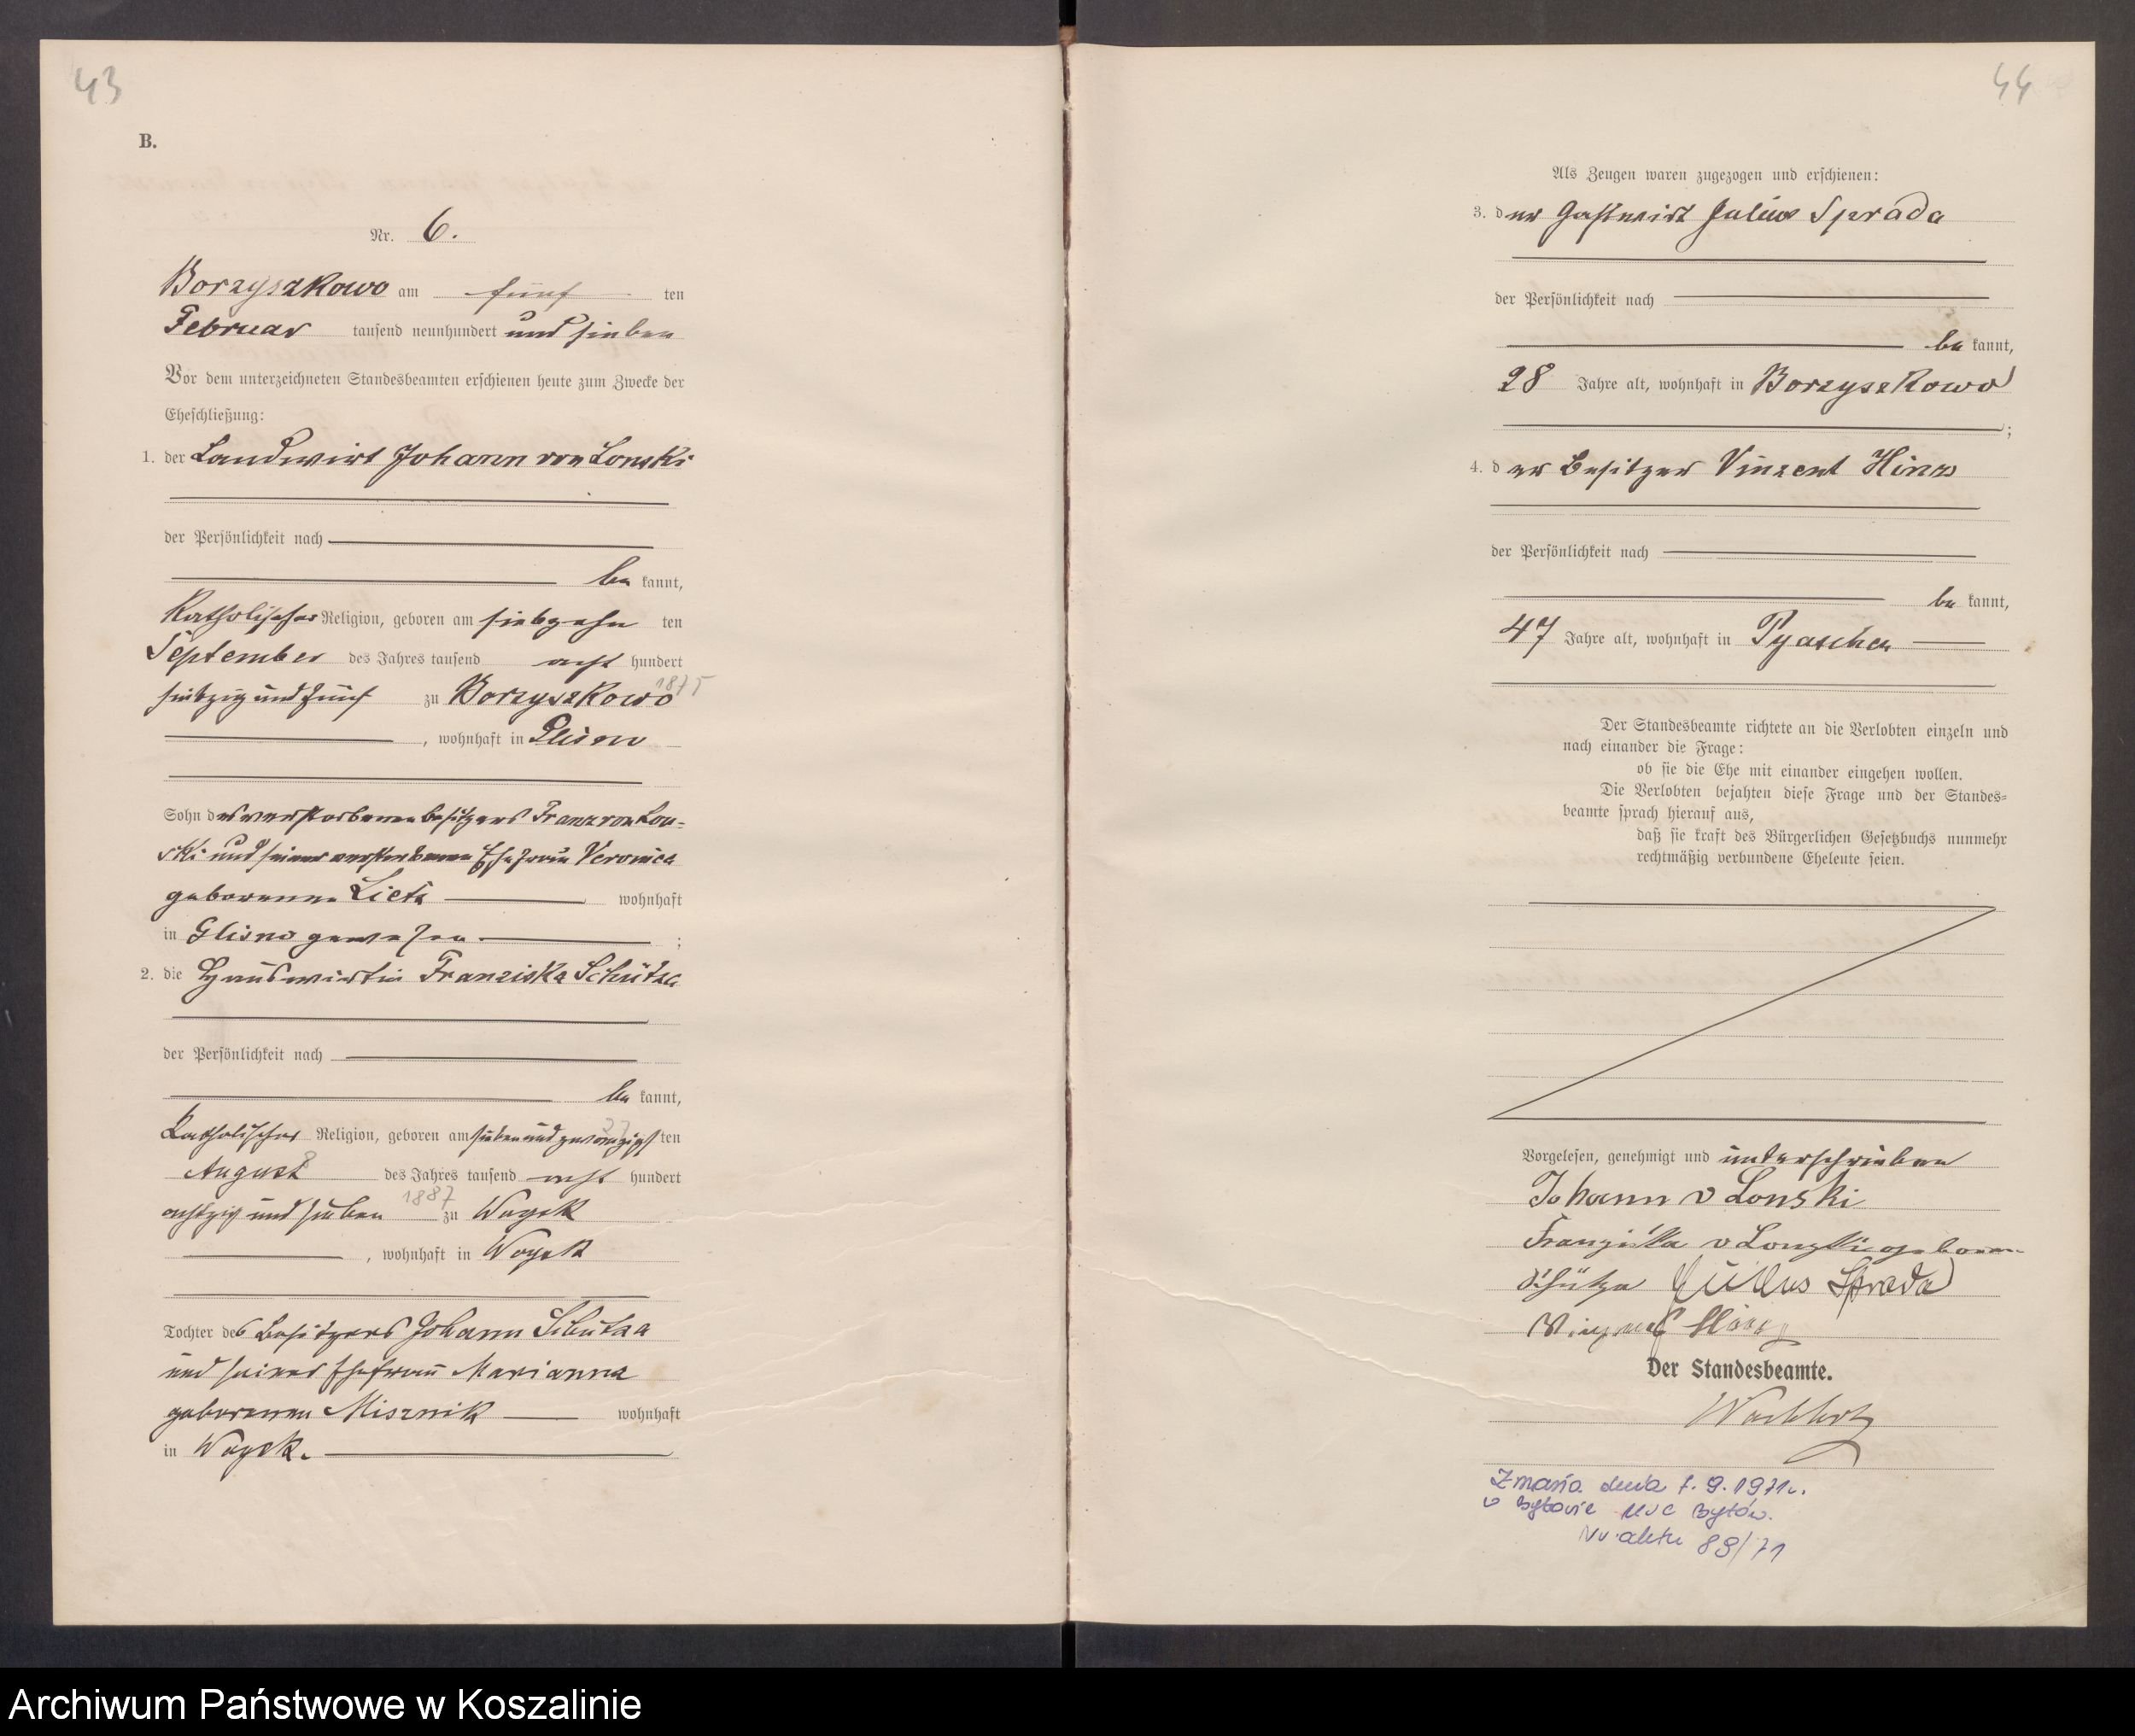 43
B.
Nr. 6.
Borzyszkowo am fünf ten
Februar tausend neunhundert und sieben
Vor dem unterzeichneten Standesbeamten erschienen heute zum Zwecke der
Eheschließung:
1. der Landwirt Johann von Lonski
der Persönlichkeit nach
be kannt,
Katholischer Religion, geboren am siebzehn ten
September des Jahres tausend acht hundert
siebzig und fünf zu Borzyszkowo 1875
, wohnhaft in Glisno
Sohn des verstorbenen Besitzers Franz von Lon-
ski und seiner verstorbenen Ehefrau Veronica
geborenen Lietz wohnhaft
in Glisno gewesen ;
2. die Hauswirtin Franziska Schütza
der Persönlichkeit nach
be kannt,
Katholischer Religion, geboren am sieben und zwanzigsten 27
August 8 des Jahres tausend acht hundert
achtzig und sieben 1887 zu Woysk
, wohnhaft in Woysk
Tochter des Besitzers Johann Schütza
und seiner Ehefrau Marianna
geborenen Misznik wohnhaft
in Woysk.
44
Als Zeugen waren zugezogen und erschienen:
3. der Gastwirt Julius Sprada
der Persönlichkeit nach
be kannt,
28 Jahre alt, wohnhaft in Borzyszkowo
;
4. der Besitzer Vinzent Hinz
der Persönlichkeit nach
be kannt,
47 Jahre alt, wohnhaft in Pyaschen
Der Standesbeamte richtete an die Verlobten einzeln und
nach einander die Frage:
ob sie die Ehe mit einander eingehen wollen.
Die Verlobten bejahten diese Frage und der Standes-
beamte sprach hierauf aus,
daß sie kraft des Bürgerlichen Gesetzbuchs nunmehr
rechtmäßig verbundene Eheleute seien.
Vorgelesen, genehmigt und unterschrieben
Johann v Lonski
Franziska v Lonzki geboren
Schütza Julius Sprada
Vinzent Hinz
Der Standesbeamte.
Zmarła dnia 7.9.1971r.
w Bytowie USC Bytów.
Nr aktu 89/71
Archiwum Państwowe w Koszalinie